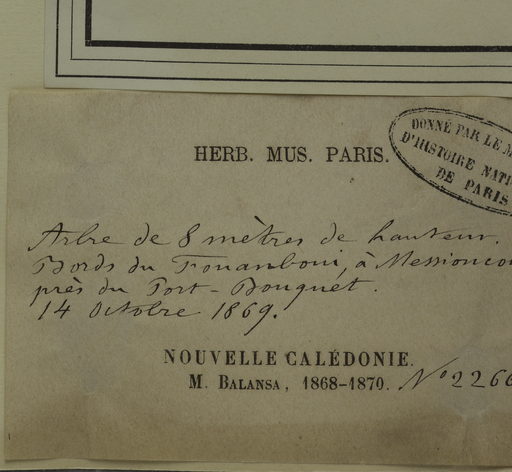 HERB. MUS. PARIS.
DONNÉ PAR LE M
D'HISTOIRE NATI
DE PARIS
Arbre de 8 mètres de hauteur.
Bords du Fouanboui, à Messioncou
près du Port-Bouquet.
14 Octobre 1869.
NOUVELLE CALÉDONIE.
M. BALANSA, 1868-1870. N° 2266